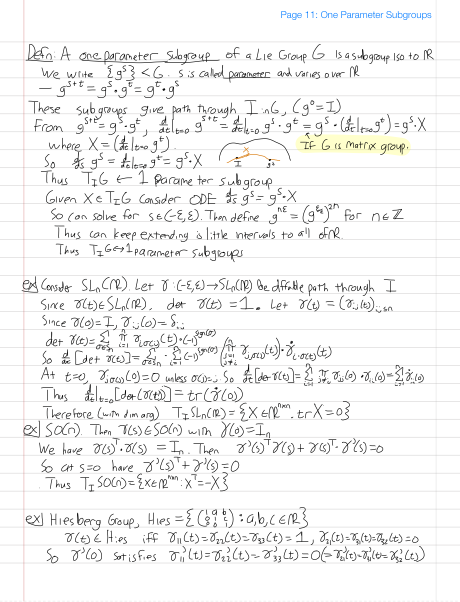 Page 11: One Parameter Subgroups
Defn: A one parameter subgroup of a Lie Group G is a subgroup iso to ℝ
We write {g^s} < G. s is called parameter and varies over ℝ
– g^{s+t} = g^s · g^t = g^t · g^s
These subgroups give path through I in G, (g^0 = I)
From g^{s+t} = g^s · g^t, d/dt|_{t=0} g^{s+t} = d/dt|_{t=0} g^s · g^t = g^s · (d/dt|_{t=0} g^t) = g^s · X
where X = (d/dt|_{t=0} g^t). If G is matrix group.
So d/ds g^s = d/dt|_{t=0} g^t = g^s · X
X I g^t
Thus T_I G ← 1 parameter subgroup
Given X ∈ T_I G consider ODE d/ds g^s = g^s · X
So can solve for s ∈ (-ε, ε). Then define g^{nε} = (g^{ε/2})^{2n} for n ∈ ℤ
Thus can keep extending is little intervals to all of ℝ.
Thus T_I G ↔ 1 parameter subgroups
ex) Consider SL_n(ℝ). Let γ: (-ε, ε) → SL_n(ℝ) be diffble path through I
Since γ(t) ∈ SL_n(ℝ), det γ(t) = 1. Let γ(t) = (γ_{ij}(t))_{i,j≤n}
Since γ(0) = I, γ_{ij}(0) = δ_{ij}
det γ(t) = Σ_{σ∈S_n} Π_{i=1}^n γ_{iσ(i)}(t) · (-1)^{sgn(σ)}
So d/dt [det γ(t)] = Σ_{σ∈S_n} · Σ_{i=1}^n (-1)^{sgn(σ)} (Π_{j=1, j≠i}^n γ_{jσ(j)}(t)) · γ̇_{iσ(i)}(t)
At t=0, γ_{jσ(j)}(0) = 0 unless σ(j)=j. So d/dt [det γ(t)] = Σ_{i=1}^n Π_{j≠i} γ_{jj}(0) · γ̇_{ii}(0) = Σ_{i=1}^n γ̇_{ii}(0)
Thus d/dt|_{t=0} [det(γ(t))] = tr(γ̇(0))
Therefore (with dim arg) T_I SL_n(ℝ) = {X ∈ ℝ^{n×n} : tr X = 0}
ex) SO(n). Then γ(s) ∈ SO(n) with γ(0) = I_n
We have γ(s)^T · γ(s) = I_n. Then γ'(s)^T γ(s) + γ(s)^T · γ'(s) = 0
So at s=0 have γ'(s)^T + γ'(s) = 0
Thus T_I SO(n) = {X ∈ ℝ^{n×n} : X^T = -X}
ex) Hiesberg Group, Hies = {(1 a b; 0 1 c; 0 0 1) : a,b,c ∈ ℝ}
γ(t) ∈ Hies iff γ_{11}(t) = γ_{22}(t) = γ_{33}(t) = 1, γ_{21}(t) = γ_{31}(t) = γ_{32}(t) = 0
So γ'(0) satisfies γ'_{11}(t) = γ'_{22}(t) = γ'_{33}(t) = 0 (= γ'_{21}(t) = γ'_{31}(t) = γ'_{32}(t))